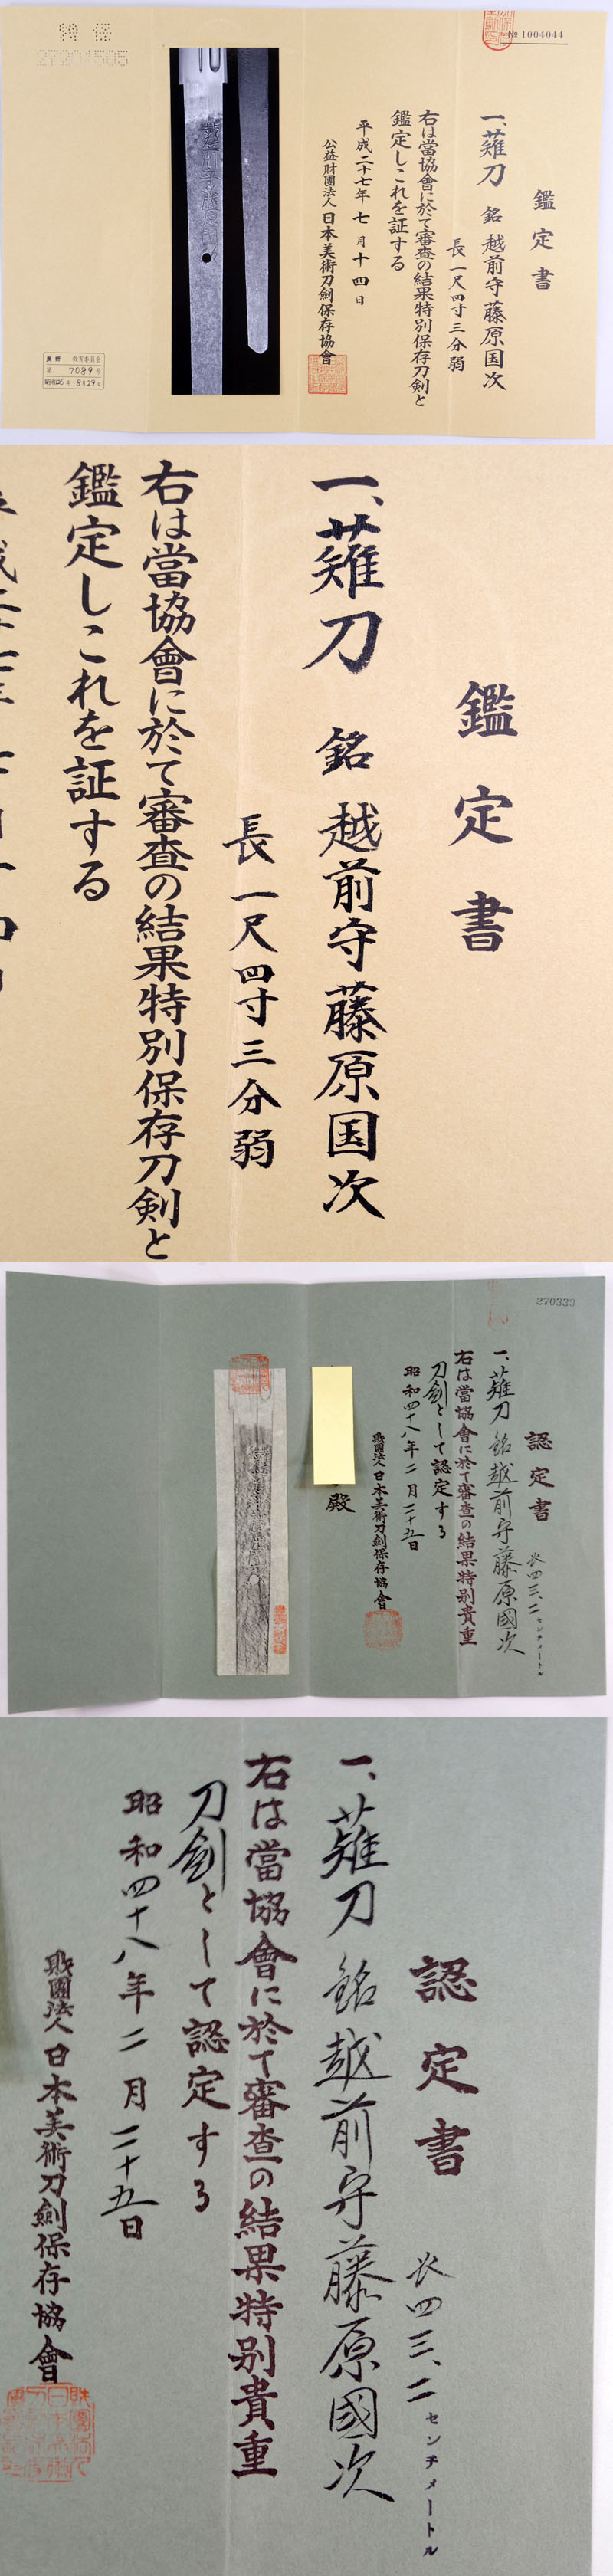 № 1004044
鑑定書
一、薙刀 銘 越前守藤原国次
長一尺四寸三分弱
右は當協會に於て審査の結果特別保存刀剣と
鑑定しこれを証する
平成二十七年七月十四日
公益財團法人日本美術刀劍保存協會
特保
27201505
長野 教育委員会
第 7089 号
昭和26年 8月29日
鑑定書
一、薙刀 銘 越前守藤原国次
長一尺四寸三分弱
右は當協會に於て審査の結果特別保存刀剣と
鑑定しこれを証する
270339
認定書
長四三、二センチメートル
一、薙刀 銘 越前守藤原國次
右は當協會に於て審査の結果特別貴重
刀剣として認定する
昭和四十八年二月二十五日
財團法人日本美術刀劍保存協會
殿
認定書
長四三、二センチメートル
一、薙刀 銘 越前守藤原國次
右は當協會に於て審査の結果特別貴重
刀剣として認定する
昭和四十八年二月二十五日
財團法人日本美術刀劍保存協會